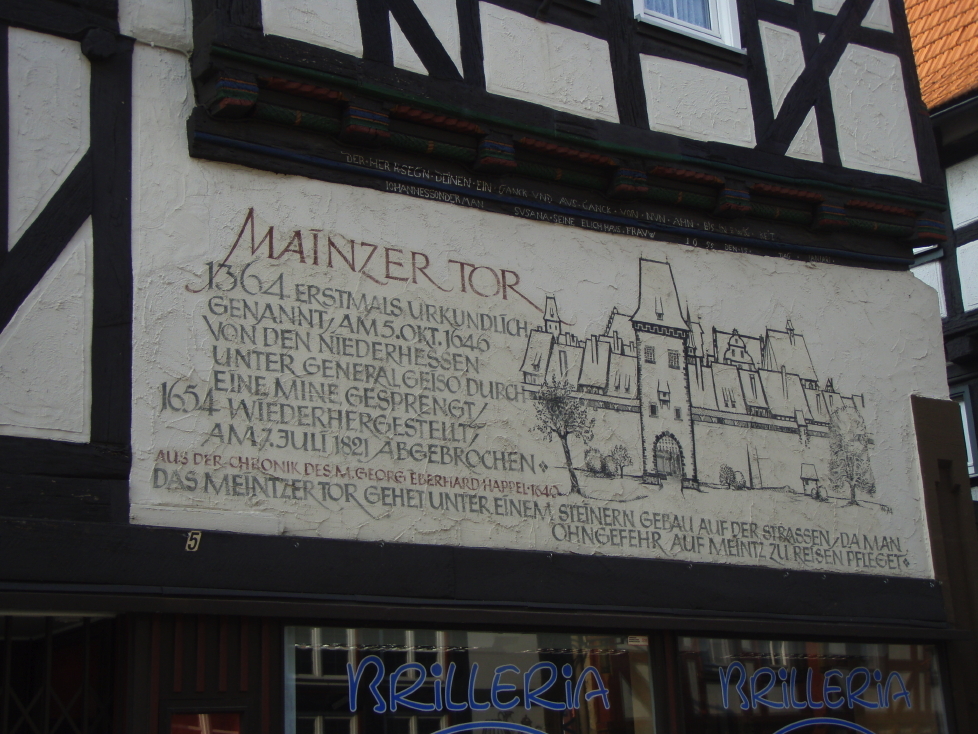 DER·HER·
EIN
GANCK VND AUS·GANCK·VON·NVN·AHN·BIS
IOHANNES SONDERMAN SVSANA·SEINE
MAINZER TOR
1364 ERSTMALS URKUNDLICH
GENANNT/AM 5.OKT.1646
VON DEN NIEDERHESSEN
UNTER GENERAL GEISO DURCH
EINE MINE GESPRENGT/
1654 WIEDERHERGESTELLT/
AM 7.JULI 1821 ABGEBROCHEN
AUS DER CHRONIK DES M.GEORG EBERHARD HAPPEL·1640
DAS MEINTZER TOR GEHET UNTER EINEM STEINERN GEBAU AUF DER STRASSEN/DA MAN
OHNGEFEHR AUF MEINTZ ZU REISEN PFLEGET
5
BRILLERIA
BRILLERIA